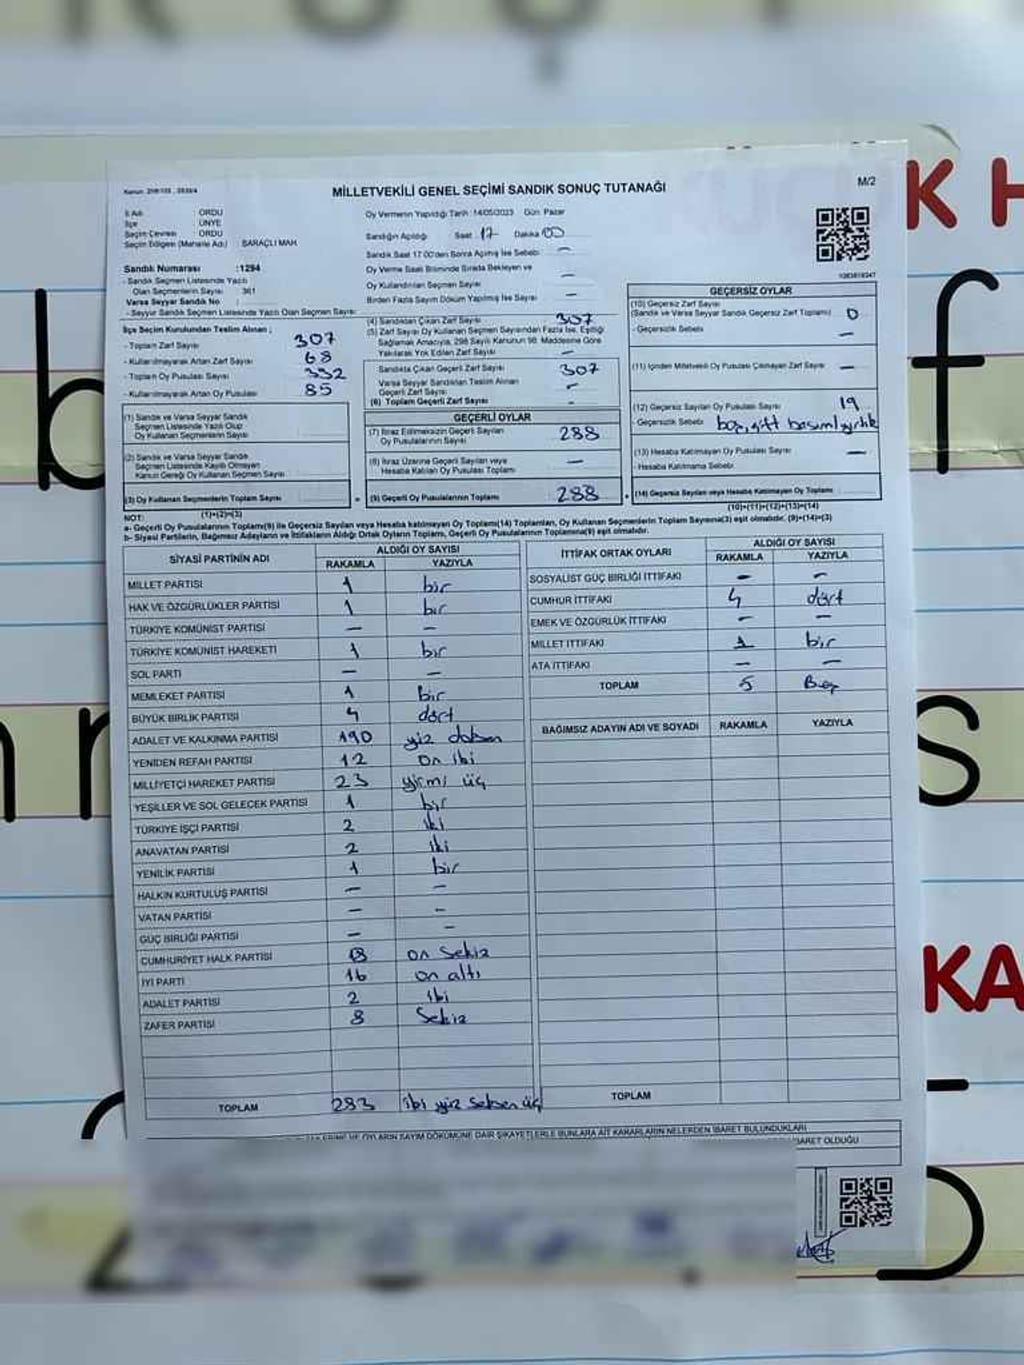 K H
b
f
s
KA
Kanun: 298/105 , 2839/4
MİLLETVEKİLİ GENEL SEÇİMİ SANDIK SONUÇ TUTANAĞI
M/2
İl Adı : ORDU
İlçe : ÜNYE
Seçim Çevresi : ORDU
Seçim Bölgesi (Mahalle Adı) : SARAÇLI MAH.
Oy Vermenin Yapıldığı Tarih :14/05/2023 Gün: Pazar
Sandığın Açıldığı Saat: 17 Dakika 00
Sandık Saat 17:00'den Sonra Açılmış İse Sebebi: —
Oy Verme Saati Bitiminde Sırada Bekleyen ve
Oy Kullandırılan Seçmen Sayısı —
Birden Fazla Sayım Döküm Yapılmış İse Sayısı —
Sandık Numarası :1294
- Sandık Seçmen Listesinde Yazılı
Olan Seçmenlerin Sayısı 361
Varsa Seyyar Sandık No :
- Seyyar Sandık Seçmen Listesinde Yazılı Olan Seçmen Sayısı:
İlçe Seçim Kurulundan Teslim Alınan ;
- Toplam Zarf Sayısı 307
- Kullanılmayarak Artan Zarf Sayısı 68
- Toplam Oy Pusulası Sayısı 332
- Kullanılmayarak Artan Oy Pusulası 85
(1) Sandık ve Varsa Seyyar Sandık
Seçmen Listesinde Yazılı Olup
Oy Kullanan Seçmenlerin Sayısı
(2) Sandık ve Varsa Seyyar Sandık
Seçmen Listesinde Kayıtlı Olmayan
Kanun Gereği Oy Kullanan Seçmen Sayısı
(3) Oy Kullanan Seçmenlerin Toplam Sayısı
(1)+(2)=(3)
(4) Sandıktan Çıkan Zarf Sayısı 307
(5) Zarf Sayısı Oy Kullanan Seçmen Sayısından Fazla İse, Eşitliği
Sağlamak Amacıyla, 298 Sayılı Kanunun 98. Maddesine Göre
Yakılarak Yok Edilen Zarf Sayısı —
Sandıkta Çıkan Geçerli Zarf Sayısı 307
Varsa Seyyar Sandıktan Teslim Alınan
Geçerli Zarf Sayısı —
(6) Toplam Geçerli Zarf Sayısı -
GEÇERLİ OYLAR
(7) İtiraz Edilmeksizin Geçerli Sayılan
Oy Pusulalarının Sayısı 288
(8) İtiraz Üzerine Geçerli Sayılan veya
Hesaba Katılan Oy Pusulası Toplamı —
(9) Geçerli Oy Pusulalarının Toplamı 288
GEÇERSİZ OYLAR
(10) Geçersiz Zarf Sayısı
(Sandık ve Varsa Seyyar Sandık Geçersiz Zarf Toplamı) 0
- Geçersizlik Sebebi —
(11) İçinden Milletvekili Oy Pusulası Çıkmayan Zarf Sayısı —
(12) Geçersiz Sayılan Oy Pusulası Sayısı 19
- Geçersizlik Sebebi boş, çift basım, yırtık
(13) Hesaba Katılmayan Oy Pusulası Sayısı —
- Hesaba Katılmama Sebebi
(14) Geçersiz Sayılan veya Hesaba Katılmayan Oy Toplamı
(10)+(11)+(12)+(13)=(14)
NOT:
a- Geçerli Oy Pusulalarının Toplamı(9) ile Geçersiz Sayılan veya Hesaba katılmayan Oy Toplamı(14) Toplamları, Oy Kullanan Seçmenlerin Toplam Sayısına(3) eşit olmalıdır. (9)+(14)=(3)
b- Siyasi Partilerin, Bağımsız Adayların ve İttifakların Aldığı Ortak Oyların Toplamı, Geçerli Oy Pusulalarının Toplamına(9) eşit olmalıdır.
SİYASİ PARTİNİN ADI ALDIĞI OY SAYISI
RAKAMLA YAZIYLA
MİLLET PARTİSİ 1 bir
HAK VE ÖZGÜRLÜKLER PARTİSİ 1 bir
TÜRKİYE KOMÜNİST PARTİSİ — —
TÜRKİYE KOMÜNİST HAREKETİ 1 bir
SOL PARTİ — —
MEMLEKET PARTİSİ 1 bir
BÜYÜK BİRLİK PARTİSİ 4 dört
ADALET VE KALKINMA PARTİSİ 190 yüz doksan
YENİDEN REFAH PARTİSİ 12 on iki
MİLLİYETÇİ HAREKET PARTİSİ 23 yirmi üç
YEŞİLLER VE SOL GELECEK PARTİSİ 1 bir
TÜRKİYE İŞÇİ PARTİSİ 2 iki
ANAVATAN PARTİSİ 2 iki
YENİLİK PARTİSİ 1 bir
HALKIN KURTULUŞ PARTİSİ — —
VATAN PARTİSİ — —
GÜÇ BİRLİĞİ PARTİSİ — —
CUMHURİYET HALK PARTİSİ 18 on sekiz
İYİ PARTİ 16 on altı
ADALET PARTİSİ 2 iki
ZAFER PARTİSİ 8 Sekiz
TOPLAM 283 iki yüz seksen üç
İTTİFAK ORTAK OYLARI ALDIĞI OY SAYISI
RAKAMLA YAZIYLA
SOSYALİST GÜÇ BİRLİĞİ İTTİFAKI — —
CUMHUR İTTİFAKI 4 dört
EMEK VE ÖZGÜRLÜK İTTİFAKI — —
MİLLET İTTİFAKI 1 bir
ATA İTTİFAKI — —
TOPLAM 5 Beş
BAĞIMSIZ ADAYIN ADI VE SOYADI RAKAMLA YAZIYLA
TOPLAM
OYLARIN SAYIM DÖKÜMÜNE DAİR ŞİKAYETLERLE BUNLARA AİT KARARLARIN NELERDEN İBARET BULUNDUKLARI
İBARET OLDUĞU